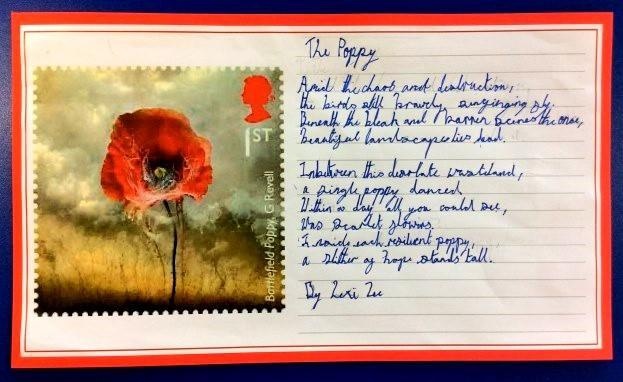 1ST
Battlefield Poppy, G Revell
The Poppy
Amid the chaos and destruction,
the birds still bravely singing fly.
Beneath the bleak and barren scenes the once,
beautiful landscapes lies dead.
Inbetween this desolate wasteland,
a single poppy danced.
Within a day all you could see,
was scarlet flowers.
Inside each resilient poppy,
a slither of hope stands tall.
By Lexi Lee